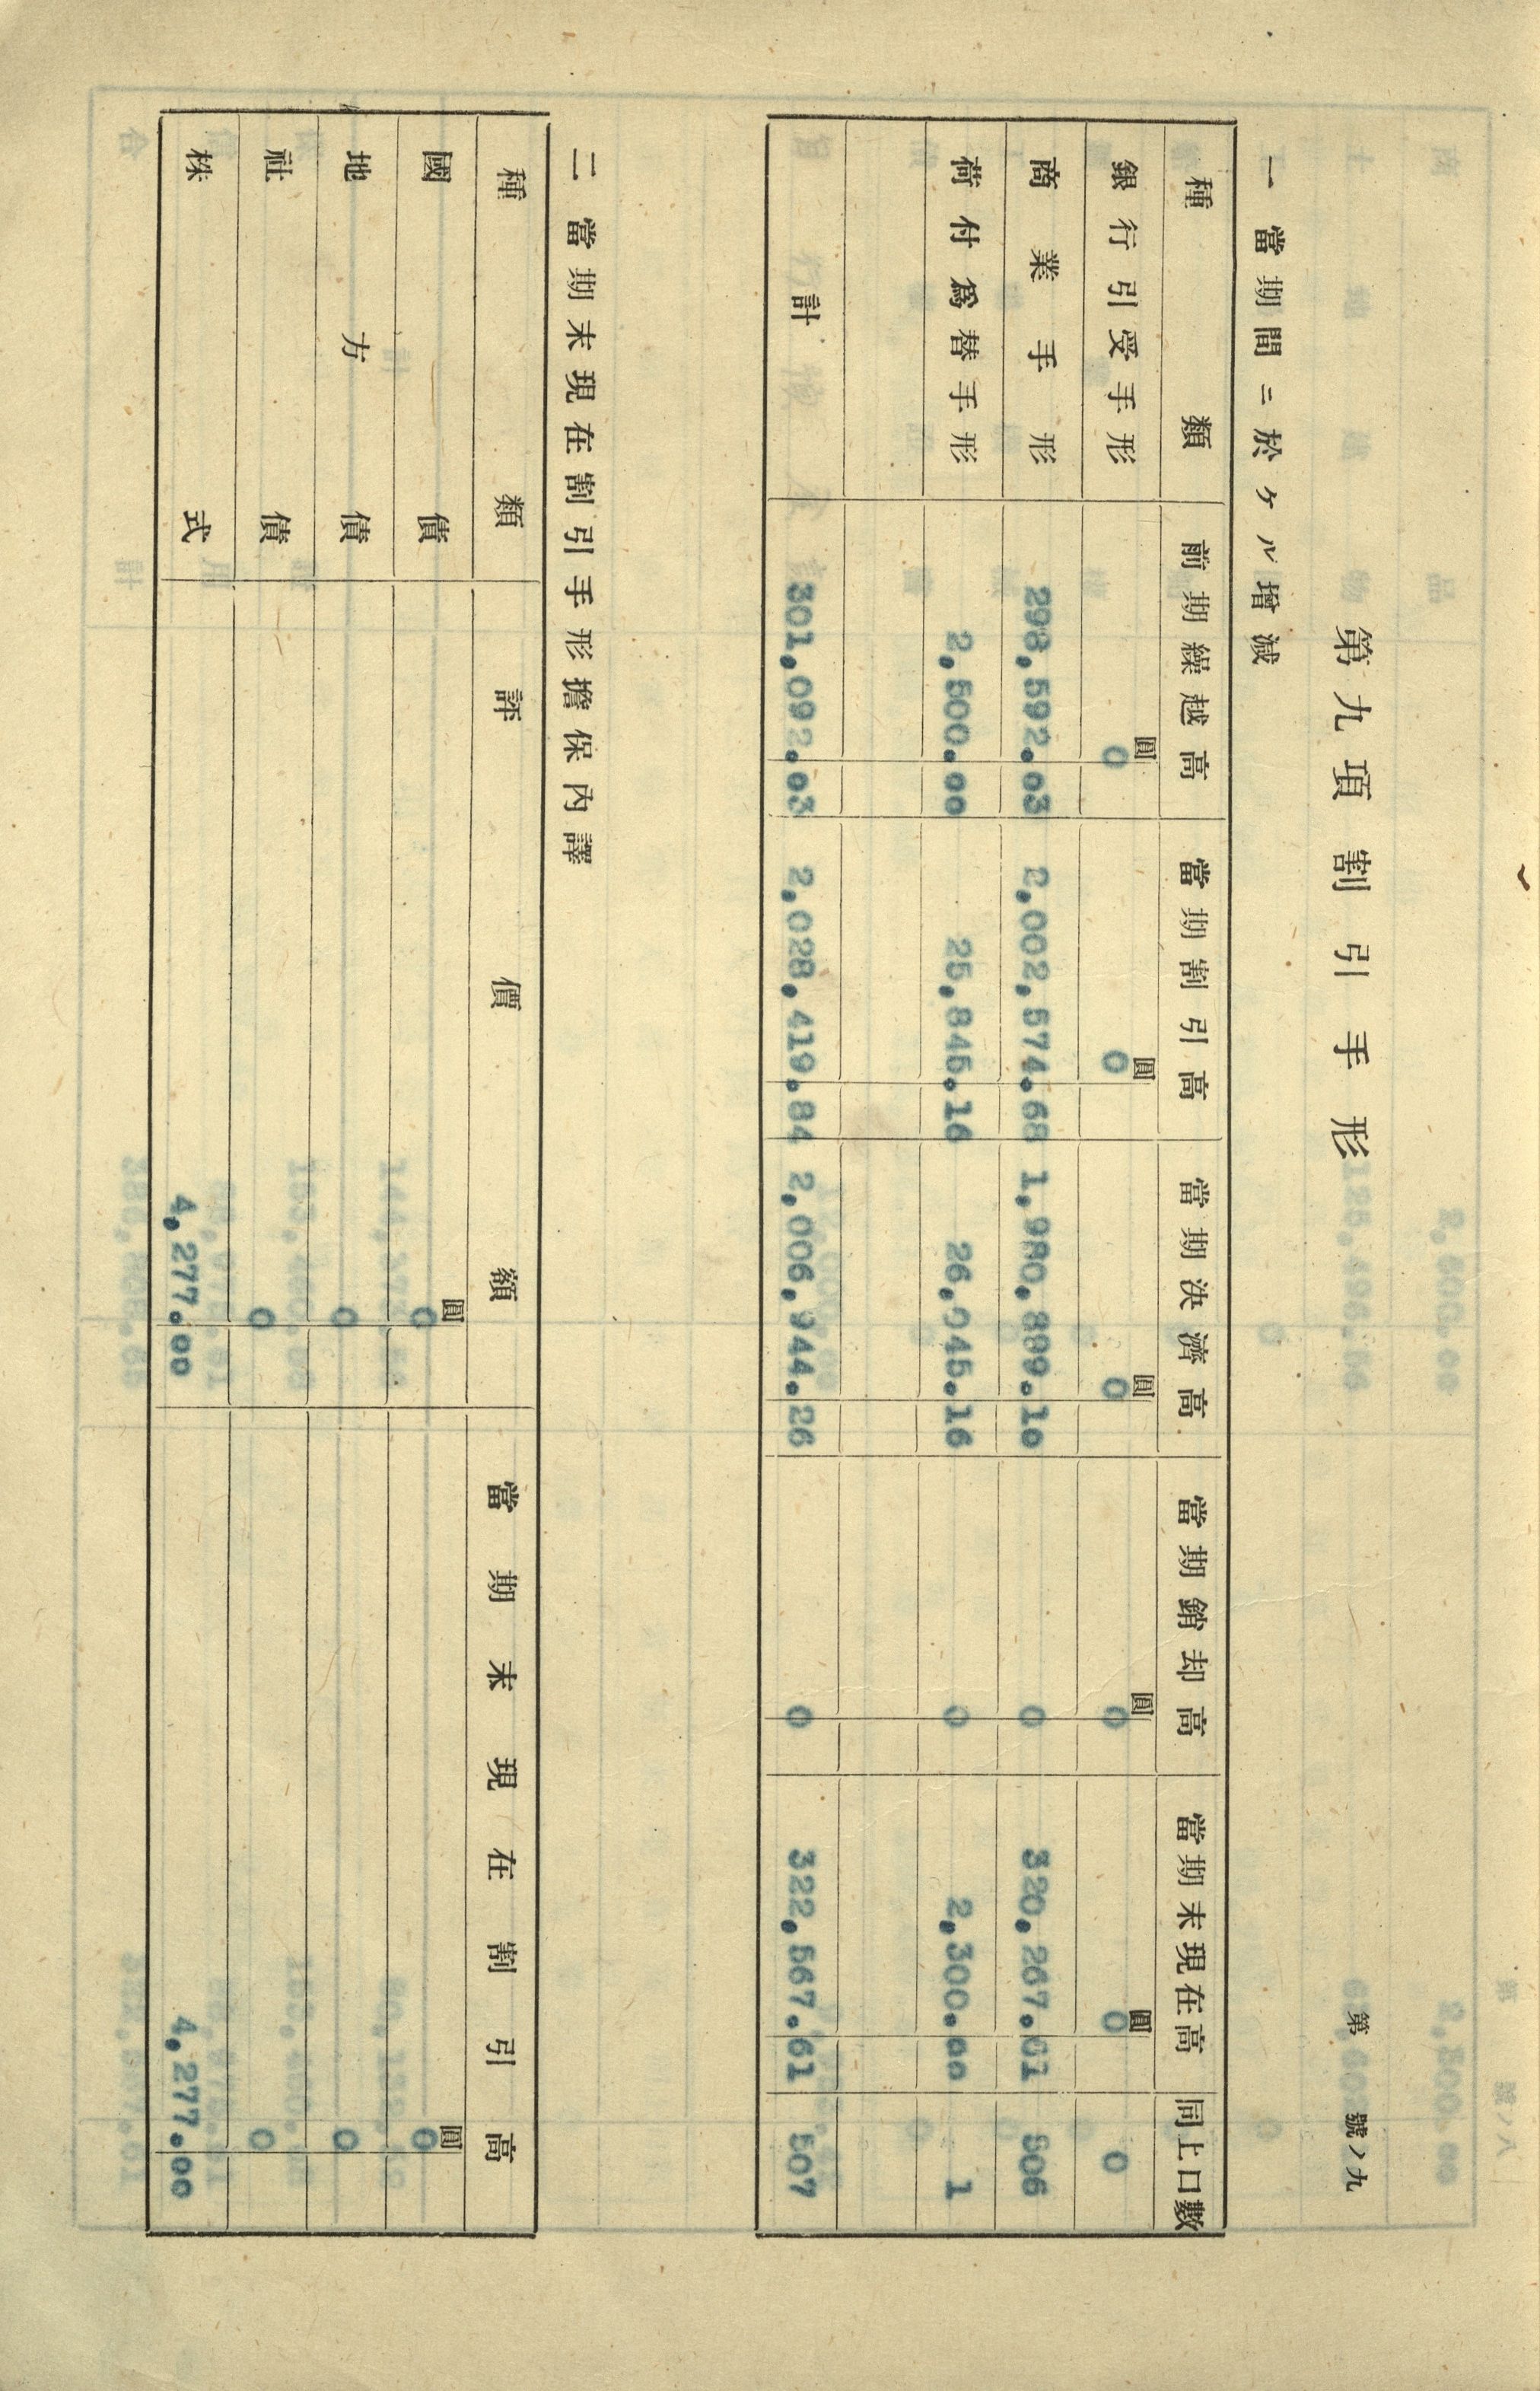 第號ノ九
第九項 割引手形
一 當期間ニ於ケル增減
種類 前期繰越高 當期割引高 當期決濟高 當期銷却高 當期末現在高 同上口數
銀行引受手形 圓 0 圓 0 圓 0 圓 0 圓 0 0
商業手形 298,592.03 2,002,574.68 1,980,899.10 0 320,267.61 506
荷付爲替手形 2,500.00 25,845.16 26,045.16 0 2,300.00 1
計 301,092.03 2,028,419.84 2,006,944.26 0 322,567.61 507
二 當期末現在割引手形擔保內譯
種類 評價額 當期末現在割引高
國債 圓 0 圓 0
地方債 0 0
社債 0 0
株式 4,277.00 4,277.00